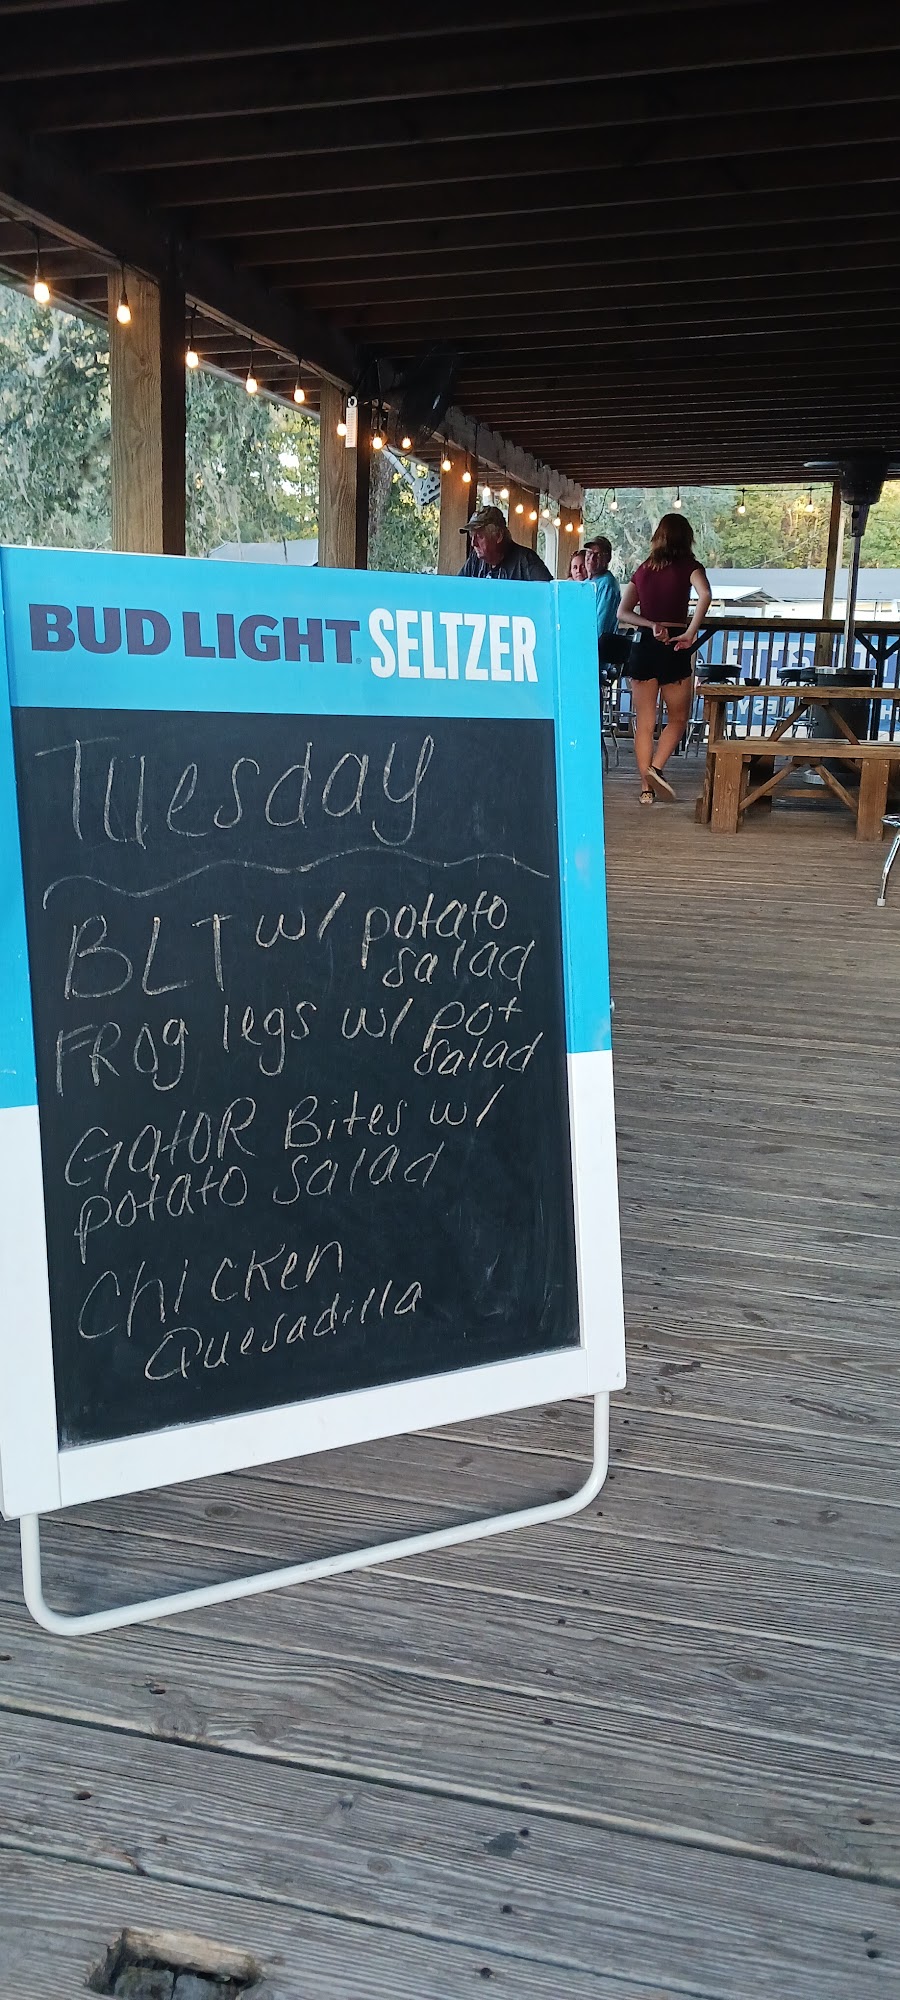 BUD LIGHT SELTZER
Tuesday
BLT w/ potato
salad
FROg legs w/ pot
salad
GatoR Bites w/
potato salad
Chicken
Quesadilla